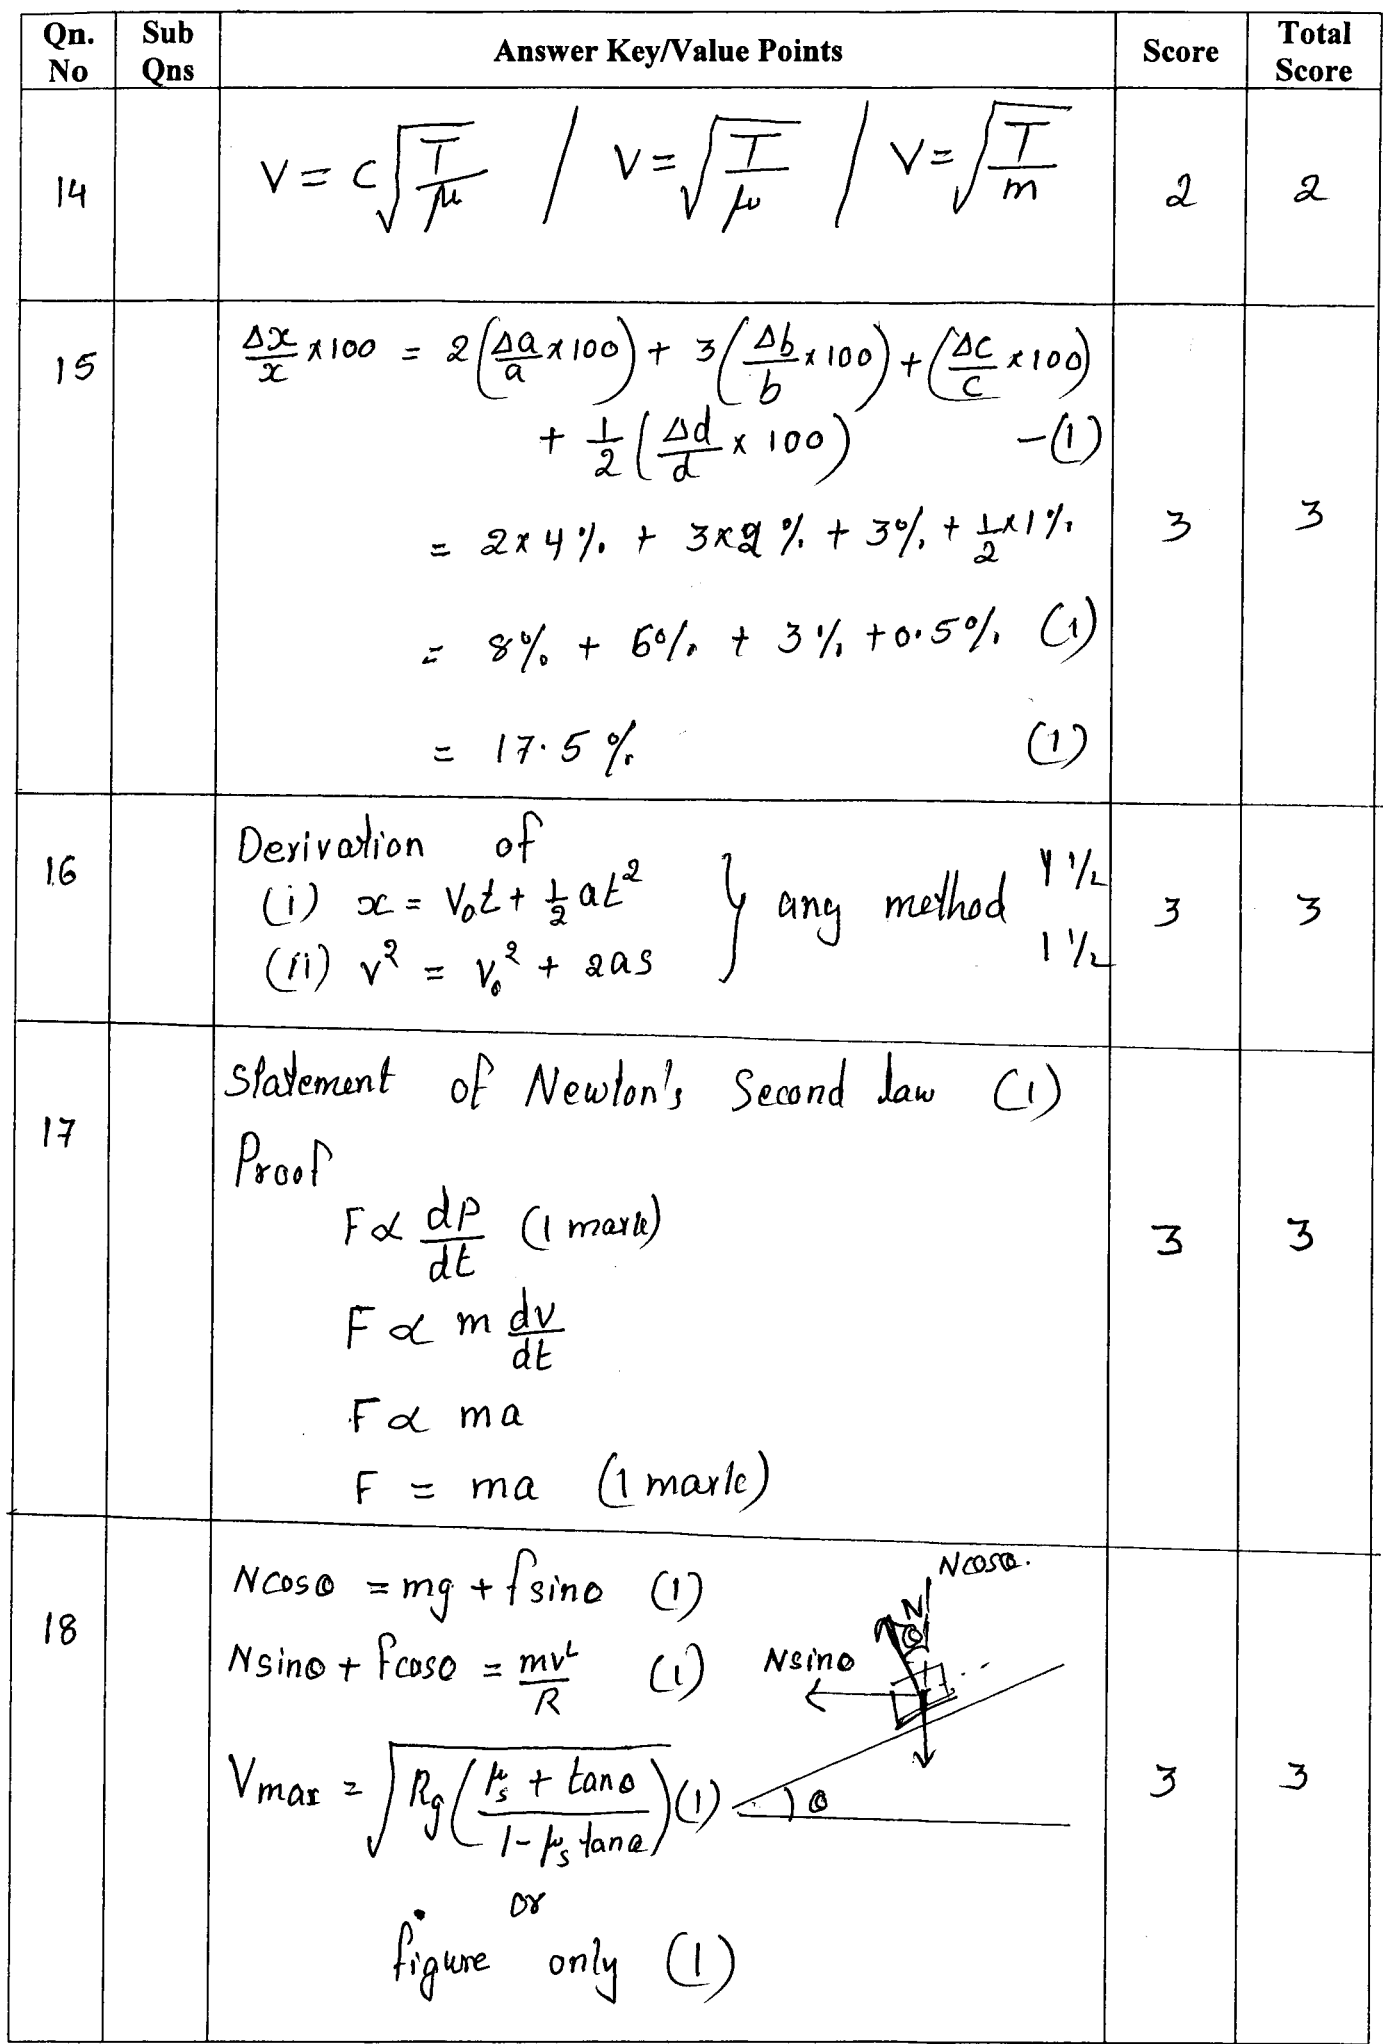 Qn. No | Sub Qns | Answer Key/Value Points | Score | Total Score
14 | V = C√(T/μ) / V = √(T/μ) / V = √(T/m) | 2 | 2
15 | Δx/x × 100 = 2(Δa/a × 100) + 3(Δb/b × 100) + (Δc/c × 100)
+ 1/2 (Δd/d × 100) -(1)
= 2 × 4 % + 3 × 2 % + 3% + 1/2 × 1 % | 3 | 3
= 8% + 6% + 3% + 0.5% (1)
= 17.5 % (1)
16 | Derivation of
(i) x = V₀t + 1/2 at² } any method 1 1/2 | 3 | 3
(ii) v² = v₀² + 2as 1 1/2
17 | Statement of Newton's Second law (1)
Proof
F ∝ dP/dt (1 mark) | 3 | 3
F ∝ m dv/dt
F ∝ ma
F = ma (1 mark)
18 | N cosθ = mg + f sinθ (1)
N sinθ + f cosθ = mv²/R (1)
Vmax = √(Rg((μs + tanθ)/(1 - μs tanθ))) (1) | 3 | 3
or
figure only (1)
N cosθ.
N
θ
N sinθ
θ